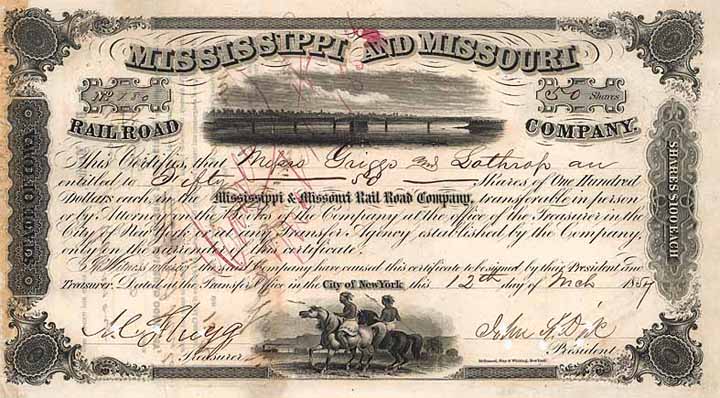 MISSISSIPPI AND MISSOURI
No 150
50 Shares
RAIL ROAD COMPANY.
This Certifies, that Messrs Griggs and Lathrop are
entitled to Fifty 50 Shares of One Hundred
Dollars each, in the Mississippi & Missouri Rail Road Company, transferable in person
or by Attorney on the Books of the Company at the Office of the Treasurer in the
City of New York or at any Transfer Agency established by the Company,
only on the surrender of this certificate.
In Witness whereof the said Company have caused this certificate to be signed by their President and
Treasurer. Dated at the Transfer Office in the City of New York this 12th day of Mch 1857
Treasurer
John A. Dix
President
SHARES $100 EACH